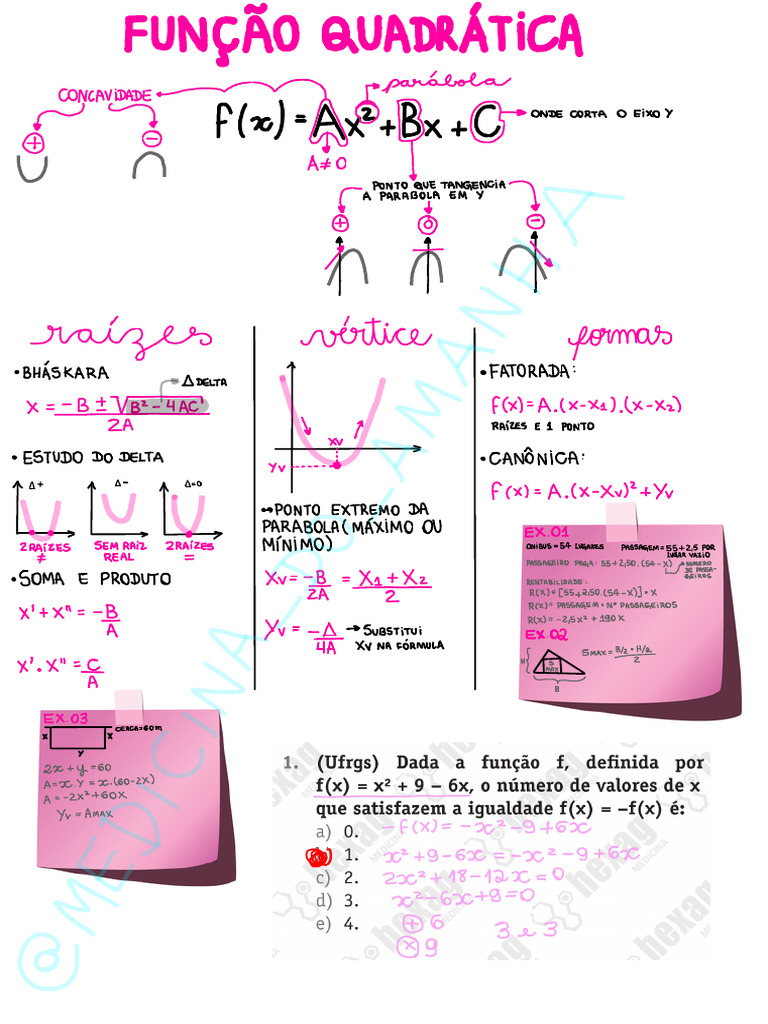 FUNÇÃO QUADRÁTICA
CONCAVIDADE
parábola
f(x) = Ax² + Bx + C
ONDE CORTA O EIXO Y
A≠0
+
−
PONTO QUE TANGENCIA
A PARABOLA EM Y
+
0
−
raízes
• BHÁSKARA
Δ DELTA
X = −B ± √B² − 4AC
2A
• ESTUDO DO DELTA
Δ+
Δ−
Δ=0
2 RAÍZES
≠
SEM RAIZ
REAL
2 RAÍZES
=
• SOMA E PRODUTO
X' + X" = −B
A
X' . X" = C
A
vértice
XV
YV
→ PONTO EXTREMO DA
PARABOLA (MÁXIMO OU
MÍNIMO)
XV = −B = X1 + X2
2A 2
YV = −Δ → SUBSTITUI
4A XV NA FÓRMULA
formas
• FATORADA:
f(x) = A.(x−x1).(x−x2)
RAÍZES E 1 PONTO
• CANÔNICA:
f(x) = A.(x−XV)² + YV
EX.01
ONIBUS = 54 LUGARES PASSAGEM = 55 + 2,5 POR
LUGAR VAZIO
PASSAGEIRO PAGA: 55 + 2,50.(54 − X) → NÚMERO
DE PASSA-
GEIROS
RENTABILIDADE:
R(X) = [55 + 2,50.(54 − X)] • X
R(X) = PASSAGEM • Nº PASSAGEIROS
R(X) = −2,5X² + 190X
EX.02
H
S
MAX
B
SMAX = B/2 • H/2
2
EX.03
X
X
Y
CERCA = 60m
2x + y = 60
A = X.Y = X.(60−2X)
A = −2X² + 60X
YV = AMAX
1. (Ufrgs) Dada a função f, definida por
f(x) = x² + 9 – 6x, o número de valores de x
que satisfazem a igualdade f(x) = –f(x) é:
a) 0.
1.
c) 2.
d) 3.
e) 4.
−f(x) = −x² − 9 + 6x
x² + 9 − 6x = −x² − 9 + 6x
2x² + 18 − 12x = 0
x² − 6x + 9 = 0
+ 6
x 9
3 e 3
hexag
MEDICINA
@MEDICINA_DO_AMANHA